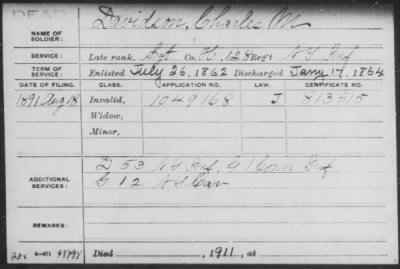 DEAD
NAME OF SOLDIER: Davidson, Charlie M
SERVICE: Late rank, Sgt Co. G, 128 Reg't N Y Inf
TERM OF SERVICE: Enlisted July 26, 1862 Discharged Jany 17, 1864
DATE OF FILING. CLASS. APPLICATION NO. LAW. CERTIFICATE NO.
1891 Aug 18 Invalid, 1049168 J 813515
Widow,
Minor,
ADDITIONAL SERVICES: D 53 N Y Inf, G 1 Conn Inf
G 12 N Y Cav
REMARKS:
Died , 1911, at